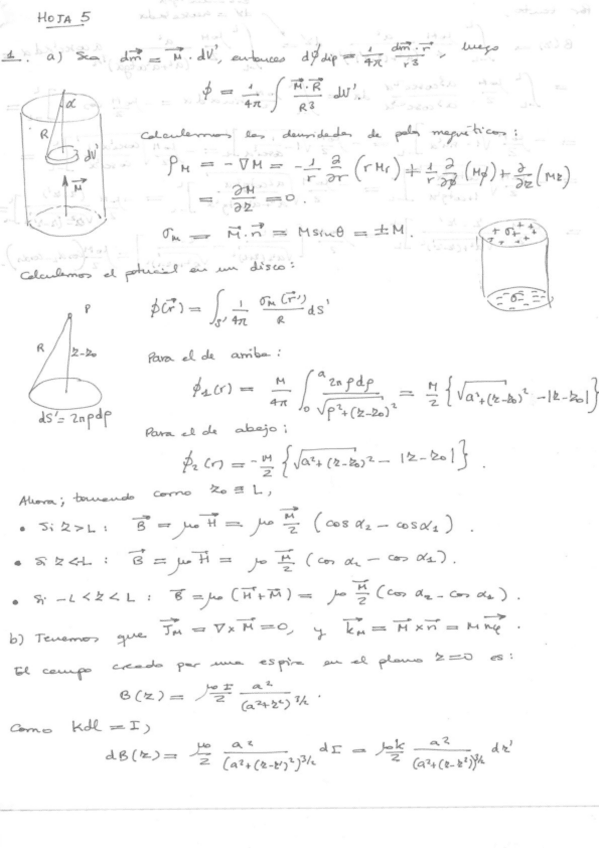 HOJA 5
1. a) Sea d\vec{m} = \vec{M} · dV', entonces dϕ_dip = \frac{1}{4π} \frac{d\vec{m}·\vec{r}}{r³}, luego
ϕ = \frac{1}{4π} ∫ \frac{\vec{M}·\vec{R}}{R³} dV'.
α
R
dV'
\vec{M}
Calculemos las densidades de polos magnéticos:
ρ_M = -∇M = -\frac{1}{r} \frac{∂}{∂r} (rM_r) + \frac{1}{r} \frac{∂}{∂ϕ} (M_ϕ) + \frac{∂}{∂z} (M_z)
= \frac{∂M}{∂z} = 0.
σ_M = \vec{M}·\vec{n} = M sinθ = ±M.
Calculemos el potencial en un disco:
ϕ(\vec{r}) = ∫_{S'} \frac{1}{4π} \frac{σ_M(\vec{r}')}{R} dS'
P
R
z-z₀
dS' = 2πρdρ
Para el de arriba:
ϕ₁(r) = \frac{M}{4π} ∫₀^a \frac{2πρdρ}{\sqrt{ρ²+(z-z₀)²}} = \frac{M}{2} {\sqrt{a²+(z-z₀)²} - |z-z₀|}
Para el de abajo:
ϕ₂(r) = -\frac{M}{2} {\sqrt{a²+(z-z₀)²} - |z-z₀|}.
Ahora, tomando como z₀ ≡ L,
• Si z>L: \vec{B} = μ₀\vec{H} = μ₀ \frac{\vec{M}}{2} (cos α₂ - cos α₁).
• Si z<-L: \vec{B} = μ₀\vec{H} = μ₀ \frac{\vec{M}}{2} (cos α₂ - cos α₁).
• Si -L<z<L: \vec{B} = μ₀(\vec{H}+\vec{M}) = μ₀ \frac{\vec{M}}{2} (cos α₂ - cos α₁).
b) Tenemos que \vec{J}_M = ∇×\vec{M} = 0, y \vec{k}_M = \vec{M}×\vec{n} = M\vec{n}_φ.
El campo creado por una espira en el plano z=0 es:
B(z) = \frac{μ₀I}{2} \frac{a²}{(a²+z²)^{3/2}}.
Como Kdl = I,
dB(z) = \frac{μ₀}{2} \frac{a²}{(a²+(z-z')²)^{3/2}} dI = \frac{μ₀k}{2} \frac{a²}{(a²+(z-z')²)^{3/2}} dz'